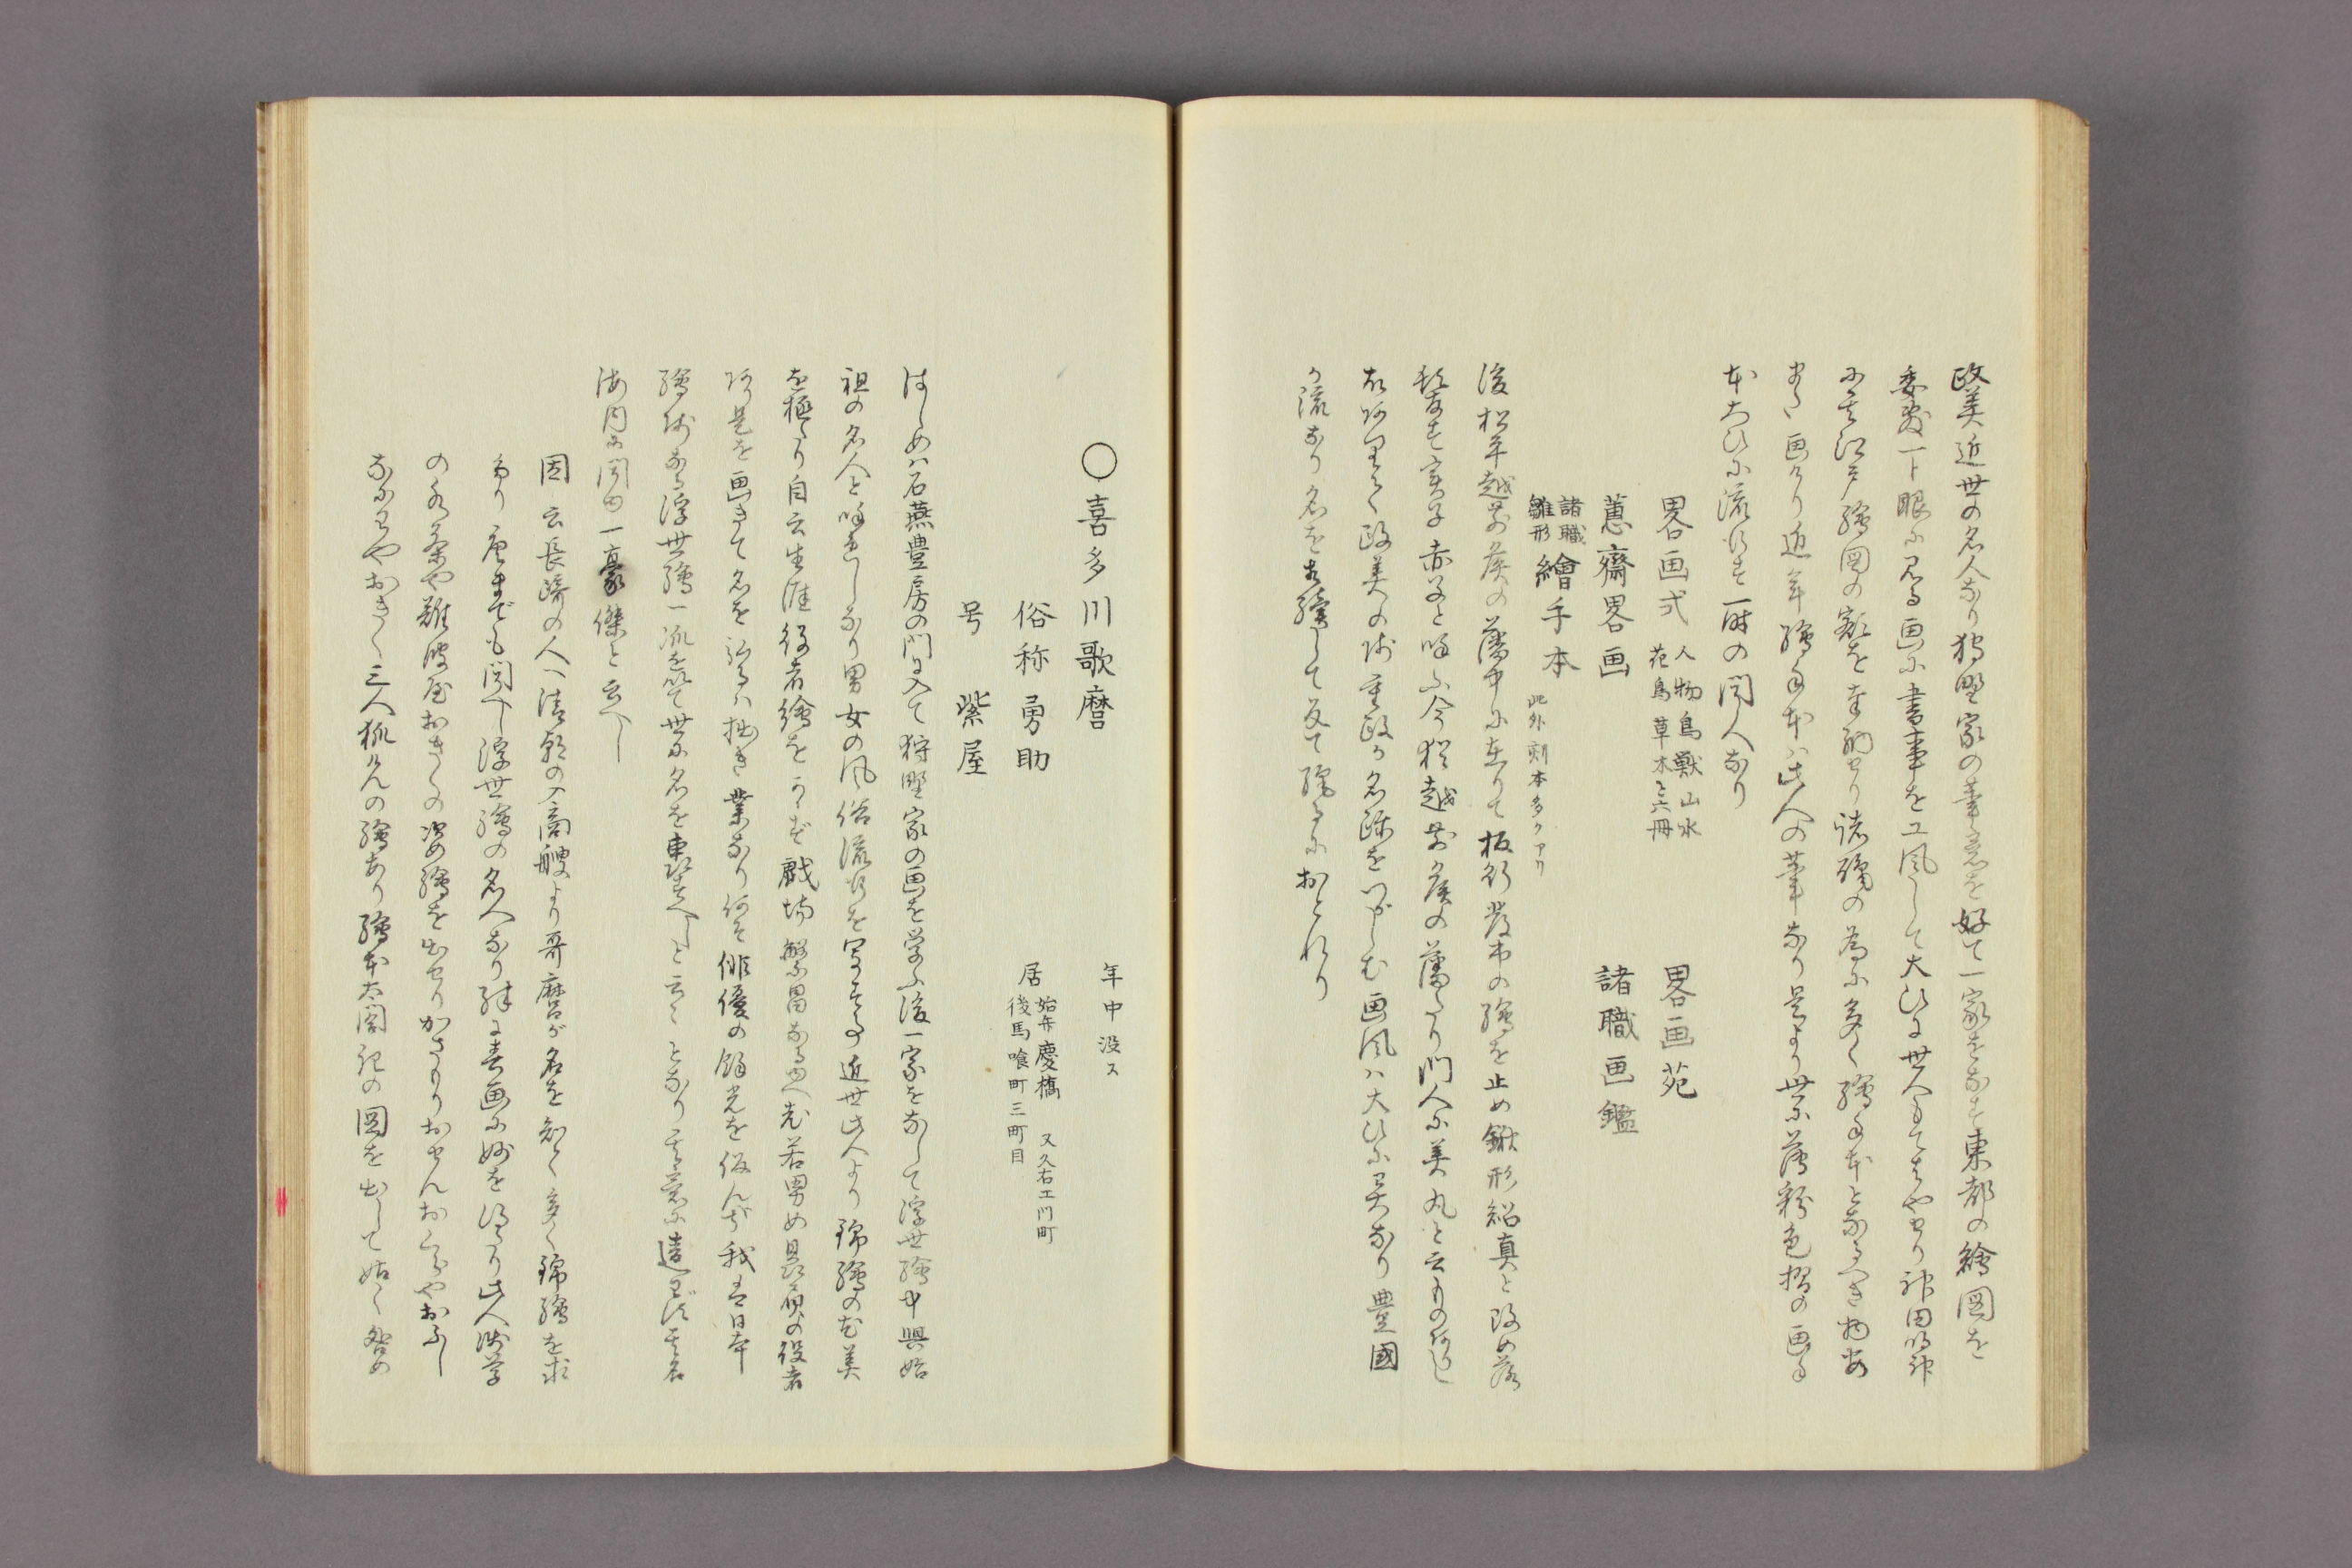 政美近世の名人なり狩野家の筆意を好て一家をなす東都の絵図を
委敷一ト眼に見る画に書事を工風して大ひに世人もてはやせり神田明神
に其江戸繪図の額を奉納せり諸職の為に多く繪手本となるへき物あ
また画けり近年繪手本ハ此人の筆なり是より世に薄彩色摺の画手
本大ひに流行す一時の聞人なり
畧画式 人物鳥獣山水 花鳥草木ト六冊 畧画苑
蕙齋畧画 諸職画鑑
諸職雛形 繪手本 此外刻本多クアリ
後松平越前侯の藩中に在りて板行発市の繪を止め鍬形紹真と改め落
髪す実子赤子と呼ふ今猶越前侯の藩たり門人に美丸と云もの
政美の時重政か名跡をつがしむ画風ハ大ひに異なり豊國
か流なり名を相續して反て におとれり
〇喜多川歌麿 年中没ス
俗称勇助 居 始弁慶橋 又久右エ門町 後馬喰町三町目
号 紫屋
はしめハ石燕豊房の門に入て狩野家の画を学ふ後一家をなして浮世繪中興始
祖の名人と呼れしなり男女の風俗流行を写す事近世此人より錦繪の花美
を極たり自云生涯役者繪をかゝず戯場繁昌なる故老若男女贔屓の役者
あり是を画きて名を弘るハ拙き業なり何そ俳優の餘光を仮んが我は日本
繪師なる浮世繪一派を以て世に名を轟すへしと云々となり其意に違わず其名
海内に聞ゆ一豪傑と云へし
因云長崎の人へ清朝の入商艘より哥麿が名を知て多く錦繪を求
めり唐までも聞へし浮世繪の名人なり殊に春画に妙を得たり此人時学
の水茶や難波屋おきくの姿繪を出せりかさもりおせんおくらやおふし
なにわやおきく三人狐けんの繪あり繪本太閤記の図を出して姑く咎め